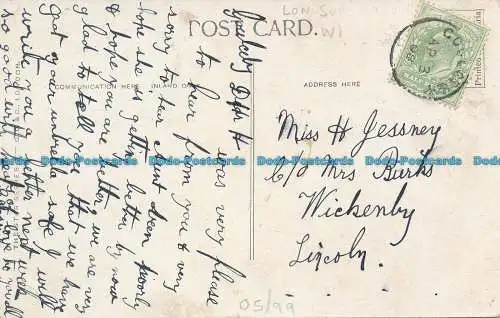 POST CARD.
COMMUNICATION HERE
INLAND O
ADDRESS HERE
was very please
to hear from you & very
sorry to hear Aunt been poorly
hope she is getting better by now
& hope you are better, we are very
glad to tell you that we have
Got your umbrella safe I will
write you a letter next week
so good with best of love to you all
Miss H Jessney
C/o Mrs Burks
Wickenby
Lincoln.
Printed
05/99
Dodo-Postcards